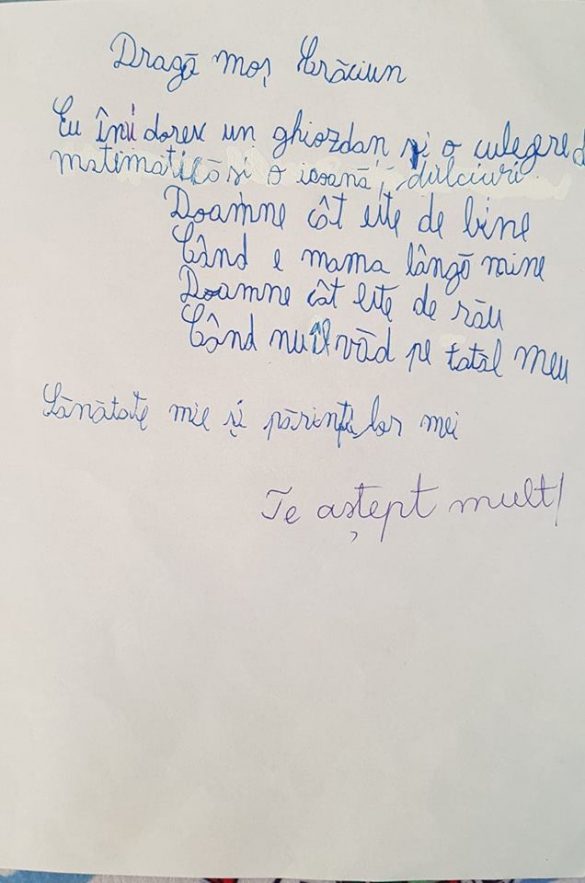 Dragă moș Crăciun
Eu înii doresc un ghiozdan și o culegere d
matimatică și o icoană, dulciuri.
Doamne cât este de bine
Când e mama lângă mine
Doamne cât este de rău
Când nu îl văd pe tatăl meu
Sănătate mie și părinților mei
Te aștept mult!